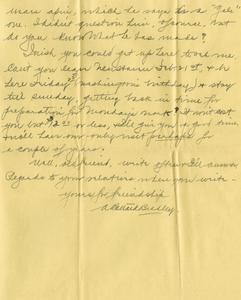 men agin, which he says is a "Yale"
one. I didn't question him, of course. But
do you know what he has made?
I wish you could get up here to see me.
Can't you leave Thurs. Feb 21st, & be
here Friday, Washington's birthday, & stay
till Sunday, getting back in time for
preparation for Monday's work? It won't cost
you but $2.00 or less, I'll give you a good time,
and I'll have our only visit perhaps for
a couple of years.
Well, old friend, write often & I'll answer
Regards to your relatives when you write -
Yours for friendship
Bradley